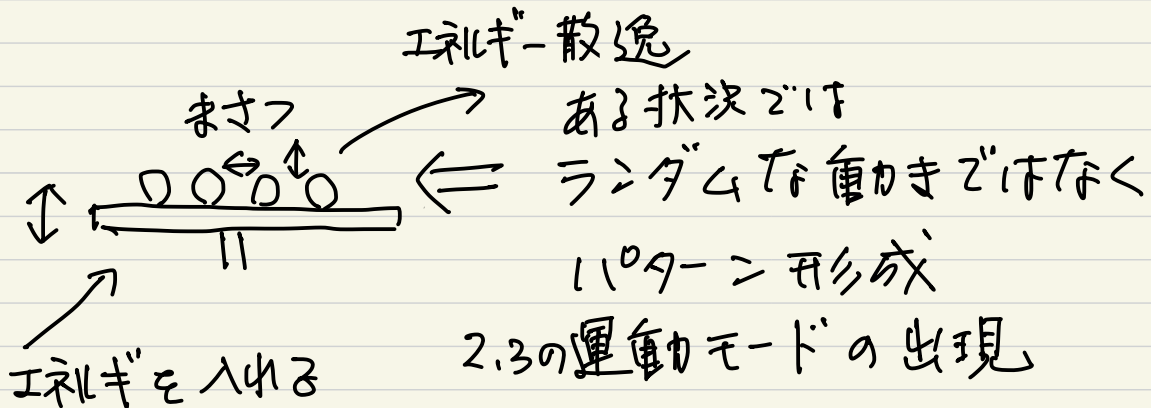 エネルギー散逸
まさつ
ある状況では
ランダムな動きまではなく
パターン形成
2.3の運動モードの出現
エネルギを入れる